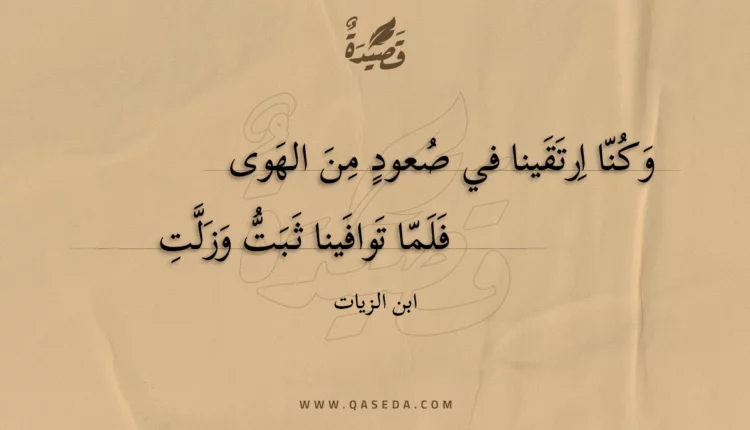 قَصِيدَةٌ
وَكُنّا اِرتَقَينا في صُعودٍ مِنَ الهَوى
فَلَمّا تَوافَينا ثَبَتُّ وَزَلَّتِ
ابن الزيات
WWW.QASEDA.COM